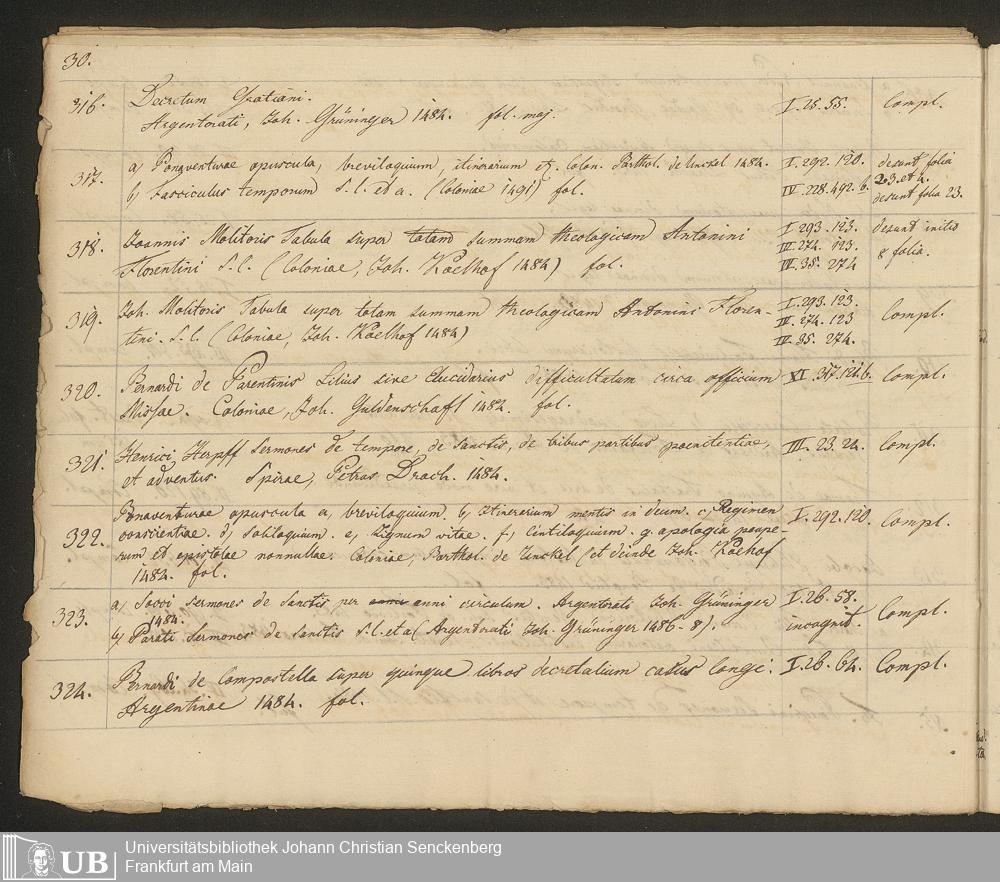 30.
316. Decretum Gratiani. I. 25. 55. Compl.
Argentorati, Joh. Grüninger 1484. fol. maj.
317. a, Bonaventurae opuscula, breviloquium, itinerarium etz. Colon. Barthol. de Unckel 1484. I. 292. 120. desunt folia
2.3. et 4.
b, Fasciculus temporum S. l. et a. (Coloniae 1491) fol. IV. 228. 492. b. desunt folia 23.
318. Joannis Molitoris Tabula super totam summam theologicam Antonini I. 293. 123. desunt initio
IV. 274. 123. 8 folia.
Florentini S. l. (Coloniae, Joh. Koelhof 1484) fol. IV. 35. 274
319. Joh. Molitoris Tabula super totam summam theologicam Antonini Floren- I. 293. 123. Compl.
IV. 274. 123
tini. S. l. (Coloniae, Joh. Koelhof 1484) IV. 35. 274.
320. Bernardi de Parentinis Lilius sive Elucidarius difficultatum circa officium VI. 317. 126. b. Compl.
Missae. Coloniae, Joh. Guldenschaff 1484. fol.
321. Henrici Herpff sermones de tempore, de sanctis, de tribus partibus poenitentiae, III. 23. 24. Compl.
et adventus. Spirae, Petrus Drach. 1484.
322. Bonaventurae opuscula a, breviloquium. b, Itinerarium mentis in deum. c, Regimen I. 292. 120. Compl.
conscientiae. d, soliloquium. e, Lignum vitae. f, Centiloquium. g. apologia paupe-
rum et epistolae nonnullae. Coloniae, Barthol. de Unckel (et deinde Joh. Koelhof
1484. fol.
323. a, Socci sermones de sanctis per anni circulum. Argentorati Joh. Grüninger I. 26. 58. Compl.
1484.
b, Parati Sermones de sanctis S. l. et a (Argentorati Joh. Grüninger 1486-8). incognit.
324. Bernardi de Compostella super quinque libros decretalium casus longi. I. 26. 64. Compl.
Argentinae 1484. fol.
UB
Universitätsbibliothek Johann Christian Senckenberg
Frankfurt am Main